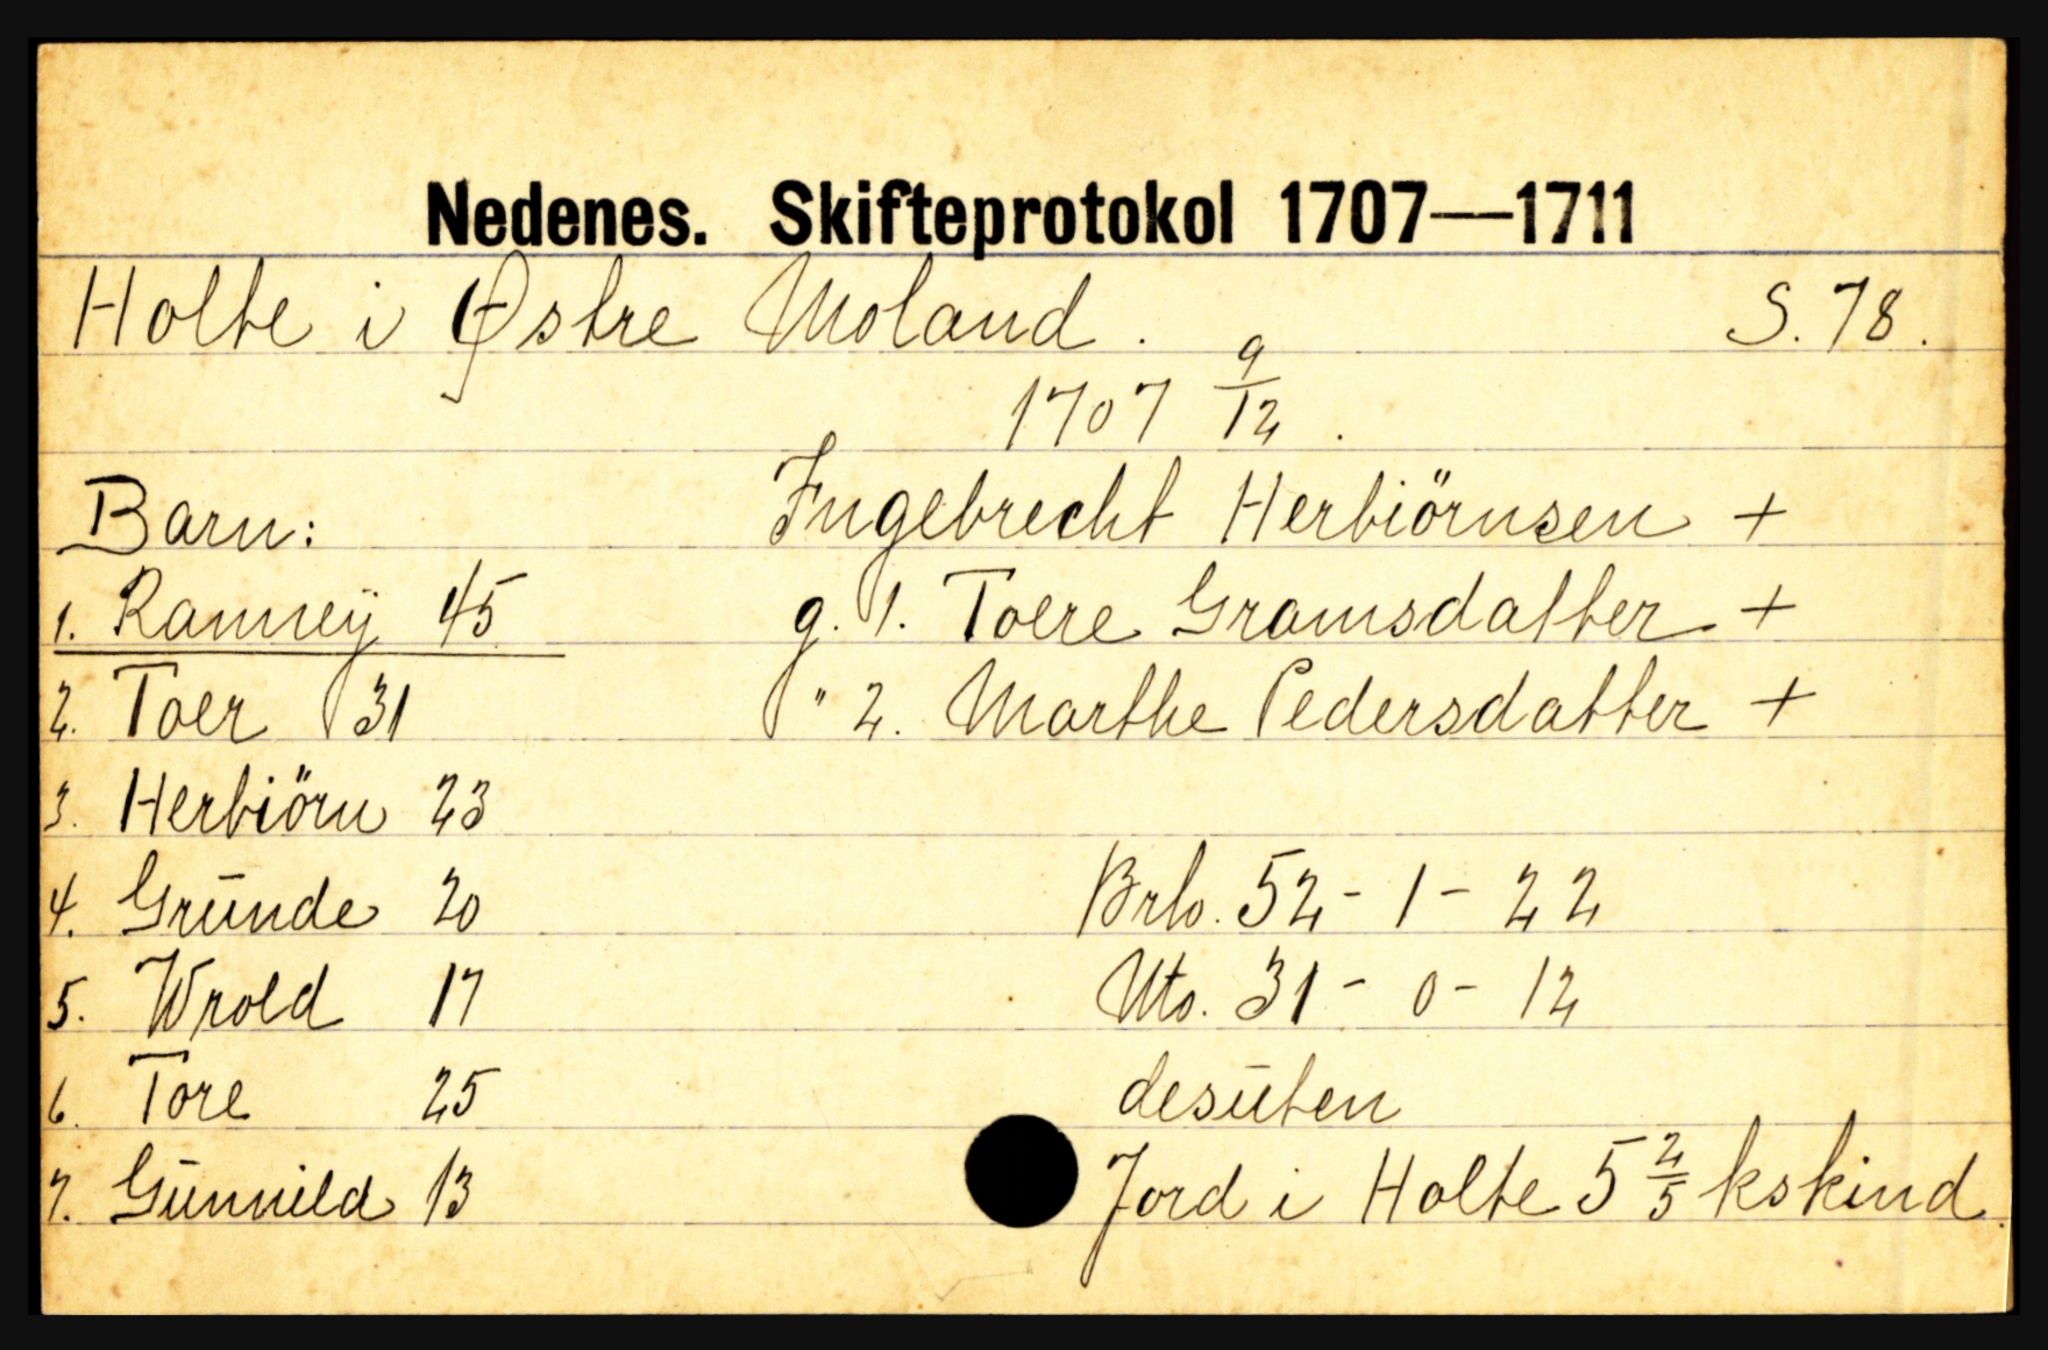 Nedenes. Skifteprotokol 1707—1711
Holte i Østre Moland. S. 78.
1707 9/12.
Barn: Ingebrecht Herbiörnsen +
1. Ranneÿ 45 g. 1. Toere Gramsdatter +
2. Toer 31 " 2. Marthe Pedersdatter +
3. Herbiörn 23
4. Grūnde 20 Brlo. 52 - 1 - 22
5. Wrold 17 Uto. 31 - 0 - 12
6. Tore 25 desūten
7. Gūnnild 13 Jord i Holte 5 2/5 kskind.